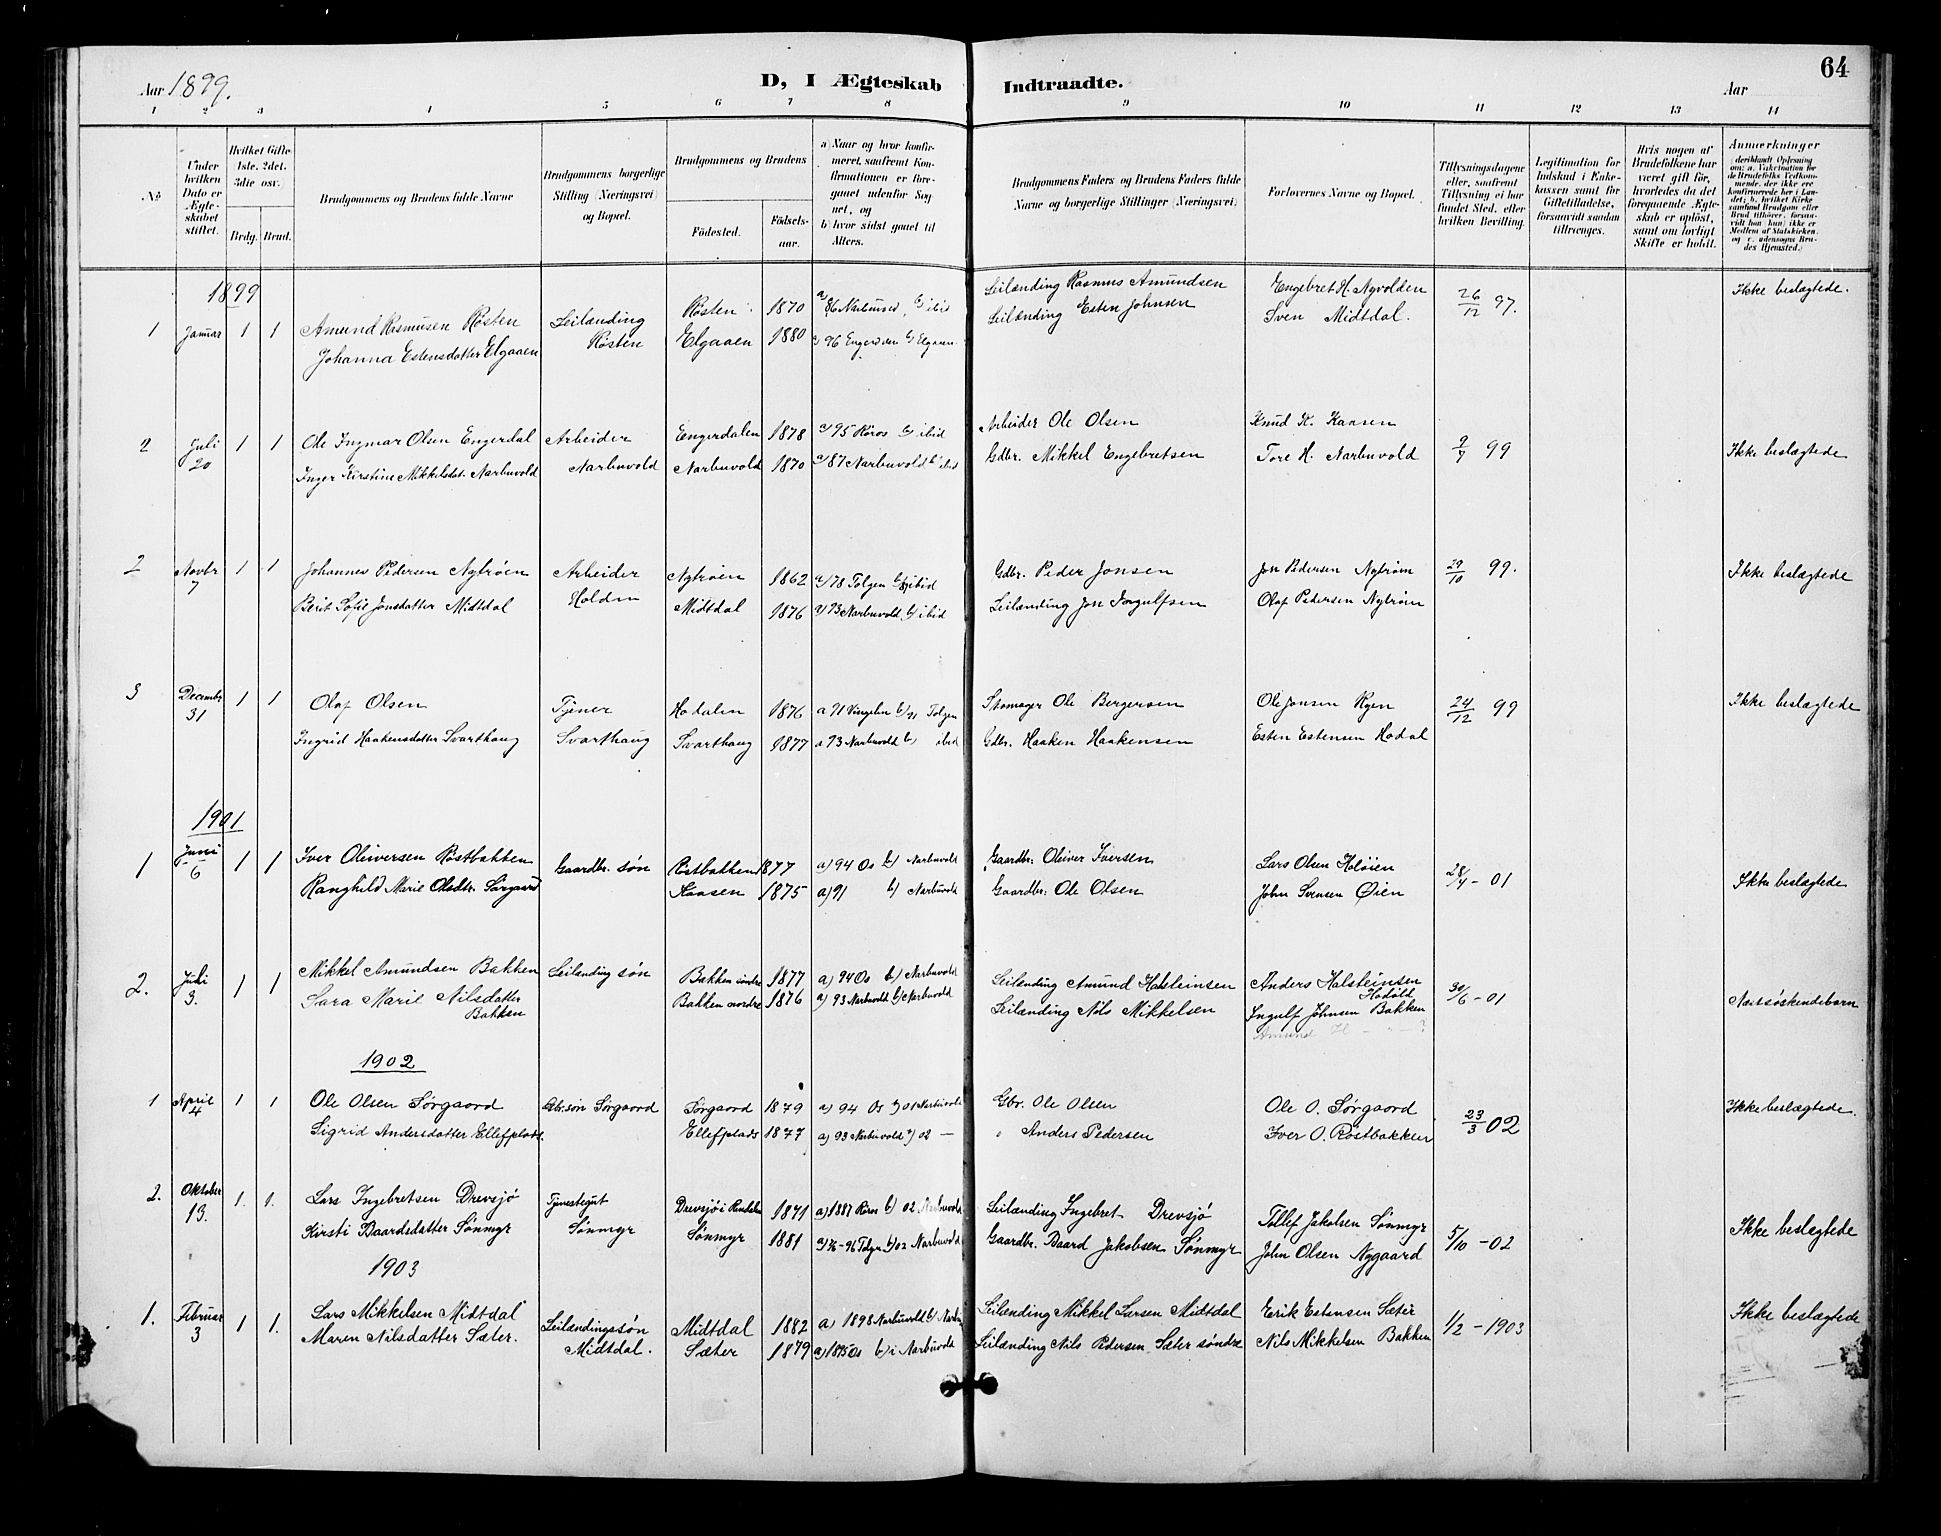 64
Aar 1899.
D, I Ægteskab
Indtraadte.
Aar
1 2 3 4 5 6 7 8 9 10 11 12 13 14
No
Under hvilken Dato er Ægteskabet stiftet.
Hvilket Gifte 1ste, 2det, 3die osv.)
Brdg. Brud.
Brudgommens og Brudens fulde Navne
Brudgommens borgerlige Stilling (Næringsvei) og Bopæl.
Brudgommens og Brudens
Fødested.
Fødselsaar.
a) Naar og hvor konfirmeret, saafremt Konfirmationen er foregaaet udenfor Sognet, og
b) hvor sidst gaaet til Alters.
Brudgommens Faders og Brudens Faders fulde Navne og borgerlige Stillinger (Næringsvei).
Forlovernes Navne og Bopæl.
Tillysningsdagene eller, saafremt Tillysning ei har fundet Sted, efter hvilken Bevilling.
Legitimation for Indskud i Enkekassen samt for Giftetilladelse, forsaavidt saadan tiltrænges.
Hvis nogen af Brudefolkene har været gift før, hvorledes da det foregaaende Ægteskab er opløst, samt om lovligt Skifte er holdt.
Anmærkninger
(deriblandt Oplysning om: a. Vaksination for de Brudefolks Vedkommende, der ikke ere konfirmerede her i Landet; b. hvilket Kirkesamfund Brudgom eller Brud tilhører, forsaavidt han (hun) ikke er Medlem af Statskirken, og c. udensogns Brudes Hjemsted.)
1899
1 Januar 1 1 Amund Rasmusen Røsten Leilænding Røsten 1870 a) 86 Narbuvold, b) ibid Leilænding Rasmus Amundsen Engebret H. Nyvolden 26/12 97. Ikke beslægtede.
Johanna Estensdatter Elgaaen Røsten Elgaaen 1880 a) 96 Engerdalen b) Elgaaen Leilænding Esten Johnsen Sven Midtdal.
2 Juli 20 1 1 Ole Ingmar Olsen Engerdal Arbeider Engerdalen 1878 a) 95 Røros b) ibid Arbeider Ole Olsen Knud K. Kaasen 9/7 99 Ikke beslægtede
Inger Kirstine Mikkelsdat. Narbuvold Narbuvold Narbuvold 1870 a) 87 Narbuvold b) ibid Gdbr. Mikkel Engebretsen Tore H. Narbuvold
2 Novbr 7 1 1 Johannes Pedersen Nytrøen Arbeider Nytrøen 1862 a) 78 Tolgen b) ibid Gdbr. Peder Jonsen Jon Pedersen Nytrøm 29/10 99. Ikke beslægtede
Berit Sofie Jonsdatter Midtdal Holden Midtdal 1876 a) 93 Narbuvold, b) ibid Leilænding Jon Ingulfsen Olaf Pedersen Nytrøm
3 December 31 1 1 Olaf Olsen Tjener Hodalen 1876 a 91 Vingelen b) 91 Tolgen Skomager Ole Bergersen Ole Jonsen Ryen 24/12 99 Ikke beslægtede
Ingrid Haakensdatter Svarthaug Svarthaug Svarthaug 1877 a 93 Narbuvold b) ibid Gdbr. Haaken Haakensen Esten Estensen Hodal
1901
1 Juni 6 1 1 Iver Oliversen Røstbakken Gaardbr. søn Røstbakken 1877 a) 94 Os b) Narbuvold Gaardbr: Oliver Iversen Lars Olsen Holøien 28/4 - 01 Ikke beslægtede
Ranghild Marie Olsdtr. Sørgaard Kaasen 1875 a) 91 b) Narbuvold Gaardbr: Ole Olsen John Svensen Øien
2. Juli 3. 1 1 Mikkel Amundsen Bakken Leilænding søn Bakken søndre 1877 a) 94 Os b) Narbuvold Leilænding Amund Halsteinsen Anders Halsteinsen Hodøld 30/6 - 01 Næstsøskendebarn
Sara Marie Nilsdatter Bakken Bakken nordre 1876 a) 93 Narbuvold b) Narbuvold Leilænding Nils Mikkelsen Ingulf Johnsen Bakken
Amund H - " - ?
1902
1 April 4 1 1 Ole Olsen Sørgaard Gbr. søn Sørgaard Sørgaard 1879 a) 94 Os b) 01 Narbuvold Gbr. Ole Olsen Ole O. Sørgaard 23/3 02 Ikke beslægtede.
Sigrid Andersdatter Ellefplads. Ellefplads 1877 a) 93 Narbuvold b) 02 — " Anders Pedersen Iver O. Røstbakken
2. Oktober 13. 1. 1. Lars Ingebretsen Drevsjø Tjenestegut Drevsjø i Rendalen 1871 a) 1887 Røros b) 02 Narbuvold Leilænding Ingebret Drevsjø Tollef Jakobsen Sønmyr 5/10 - 02 Ikke beslægtede
Kirsti Baardsdatter Sønmyr Sønmyr Sønmyr 1881 a) 7/6-96 Tolgen b) 02 Narbuvold Gaardbr. Baard Jakobsen Sønmyr John Olsen Nygaard
1903
1. Februar 3 1 1. Lars Mikkelsen Midtdal Leilændingssøn Midtdal 1882 a) 1898 Narbuvold b) Narbu Leilænding Mikkel Larsen Midtdal Erik Estensen Sæter 1/2 - 1903 Ikke beslægtede
Maren Nilsdatter Sæter. Midtdal. Sæter 1879 a) 1895 Os b) i Narbuvold Leilænding Nils Pedersen Sæter søndre Nils Mikkelsen Bakken